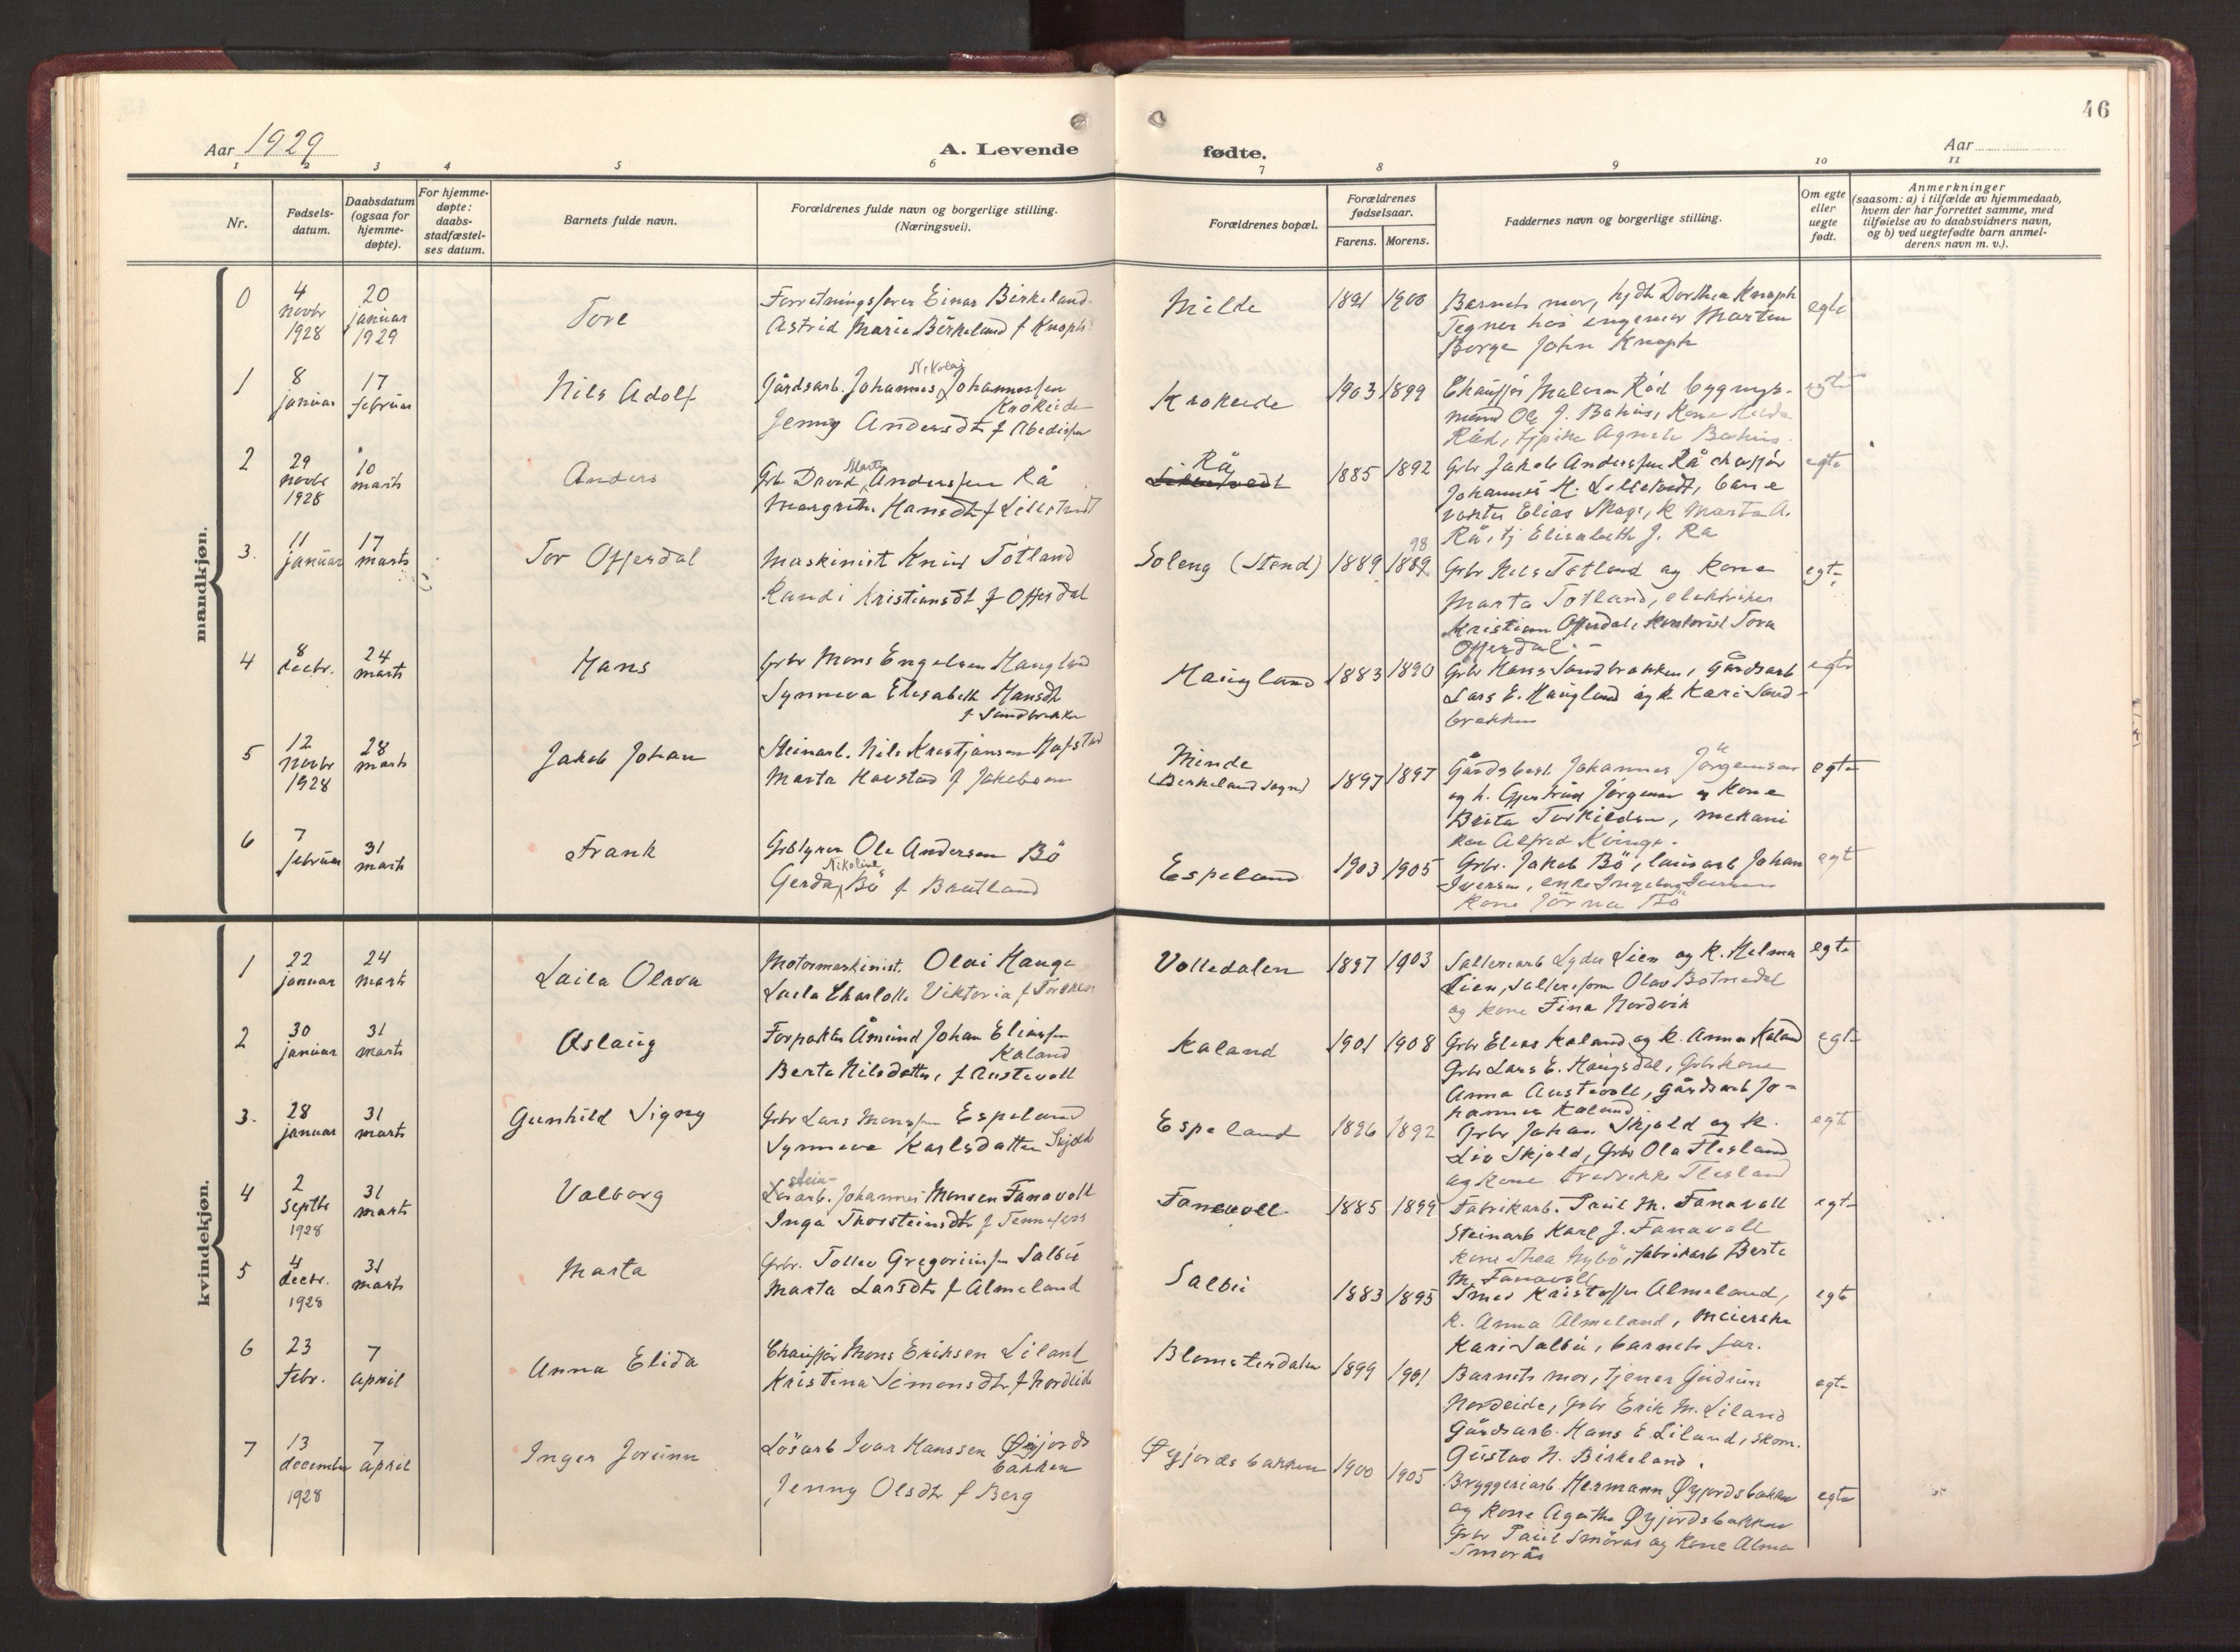 46
Aar 1929
A. Levende fødte.
Aar
1 2 3 4 5 6 7 8 9 10 11
Nr.
Fødsels-
datum.
Daabsdatum
(ogsaa for
hjemme-
døpte).
For hjemme-
døpte:
daabs-
stadfæstel-
ses datum.
Barnets fulde navn.
Forældrenes fulde navn og borgerlige stilling.
(Næringsvei).
Forældrenes bopæl.
Forældrenes
fødselsaar.
Farens. Morens.
Faddernes navn og borgerlige stilling.
Om egte
eller
uegte
født.
Anmerkninger
(saasom: a) i tilfælde av hjemmedaab,
hvem der har forrettet samme, med
tilføielse av to daabsvidners navn,
og b) ved uegtefødte barn anmel-
derens navn m. v.).
mandkjøn.
0
4
novbr
1928
20
januar
1929
Tore
Forretningsfører Einar Birkeland
Astrid Marie Birkeland f Knoph
Milde
1891 1900
Barnets mor, Dorthea Knoph
Tegner hos ingeniør Marten
Borge John Knoph
egte
1
8
januar
17
februar
Nils Adolf
Nikolai
Gårdsarb. Johannes Johannessen
Krokeide
Jenny Andersdtr f
Krokeide
1903 1899
Chauffør Råd bygnings-
mand Ole J. Bahus, Kone Hilda
Råd, Agnete Bahus
egte
2
29
novbr
1928
10
marts
Anders
Grb David Anderssen Rå
Margrethe Hansdtr f Lilletvedt
Rå
1885 1892
Grbr Jakob Anderssen Rå chaffør
Johannes H. Lilletvedt, bane
vokter Elias Skage, k Marta A.
Rå, tj Elisabeth J. Rå
egte
3.
11
januar
17
marts
Tor Offerdal
Maskinist Knut Totland
Randi Kristiansdtr f Offerdal
Soleng (Stend)
98
1889 1889
Grbr Nils Totland og Kone
Marta Totland, elektriker
Kristian Offerdal, Kontorist Tora
Offerdal. -
egte
4
8
decbr.
24
marts
Hans
Grbr Mons Engelsen Haugland
Synneva Elisabeth Hansdtr
f Sandbrekke
Haugland
1883 1890
Grbr Hans Sandbrekken, Gårdsarb
Lars E. Haugland og k. Kari Sand-
brekken
egte
5
12
novbr
1928
28
marts
Jakob Johan
Steinarb. Nils Kristjansen Hafstad
Marta Havstad f Jakobsen
Minde
(Birkeland sogn)
1897 1897
Gårdsbest. Johannes Jörgensen
og k. Gjertrud Jørgensen og Kone
Brita Torkildsen, mekani
ker Alfred Kvinge.
egte
6
7
februar
31
marts
Frank
Ole Andersen Bö
Nikoline
Gerda Bö f Brutland
Espeland
1903 1905
Grbr. Jakob Bö, Johan
Iversen, enke Ingeborg Iversen
Kone Jörna Bö
egt
kvindekjøn.
1
22
januar
24
mart
Laila Olava
Motormaskinist. Olai Hauge
Laila Charlotte Viktoria f
Volledalen
1897 1903
Lyder Lien og K. Helma
Lien, Olav Botnedal
og kone Fina Nordvik
egte
2
30
januar
31
marts
Aslaug
Forpakter Åmund Johan Eliassen
Kaland
Berta Nilsdatter, f Austevoll
Kaland
1901 1908
Grbr Elias Kaland og K. Anna Kaland
Grbr Lars E. Haugsdal, Grbrkone
Anna Austevoll, gårdsarb Jo-
hannes Kaland
egte
3.
28
januar
31
marts
Gunhild Signy
Grbr Lars Monssen Espeland
Synneve Karlsdatter Skjold
Espeland
1896 1892
Grbr Johan Skjold og K.
Liv Skjold, Grbr Ola Flesland
og Kone Fredrikke Flesland
egte
4
2
septbr
1928
31
marts
Valborg
stein-
Johannes Monsen Fanavoll
Inga Thorsteinsdtr f Tennefoss
Fanavoll
1885 1899
Fabrikarb. Paul M. Fanavoll
Steinarb Karl J. Fanavoll
Kone Thea Nybö, fabrikarb Berta
M. Fanavoll
egte
5
4
decbr.
1928
31
marts
Marta
Grbr. Tollev Gregoriussen Salbu
Marta Larsdtr f Almeland
Salbu
1883 1895
Smed Kristoffer Almeland,
K. Anna Almeland, meierske
Kari Salbu, barnets far.
egte
6
23
febr.
7
april
Anna Elida
Chauffør Mons Eriksen Liland
Kristina Simonsdtr f Nordeide
Blomsterdalen
1899 1901
Barnets mor, tjener Gudrun
Nordeide, Grbr Erik M. Liland
Gårdsarb. Hans E. Liland, skom.
Gustav N. Birkeland.
egte
7
13
december
1928
7
april
Inger Jorunn
Lösarb Ivar Hanssen Øyjords
bakken
Jenny Olsdtr f Berg
Øyjordsbakken
1900 1905
Bryggeriarb Hermann Øyjordsbakken
og Kone Agathe Øyjordsbakken
Grbr Paul Smörås og Kone Alma
Smorås
egte